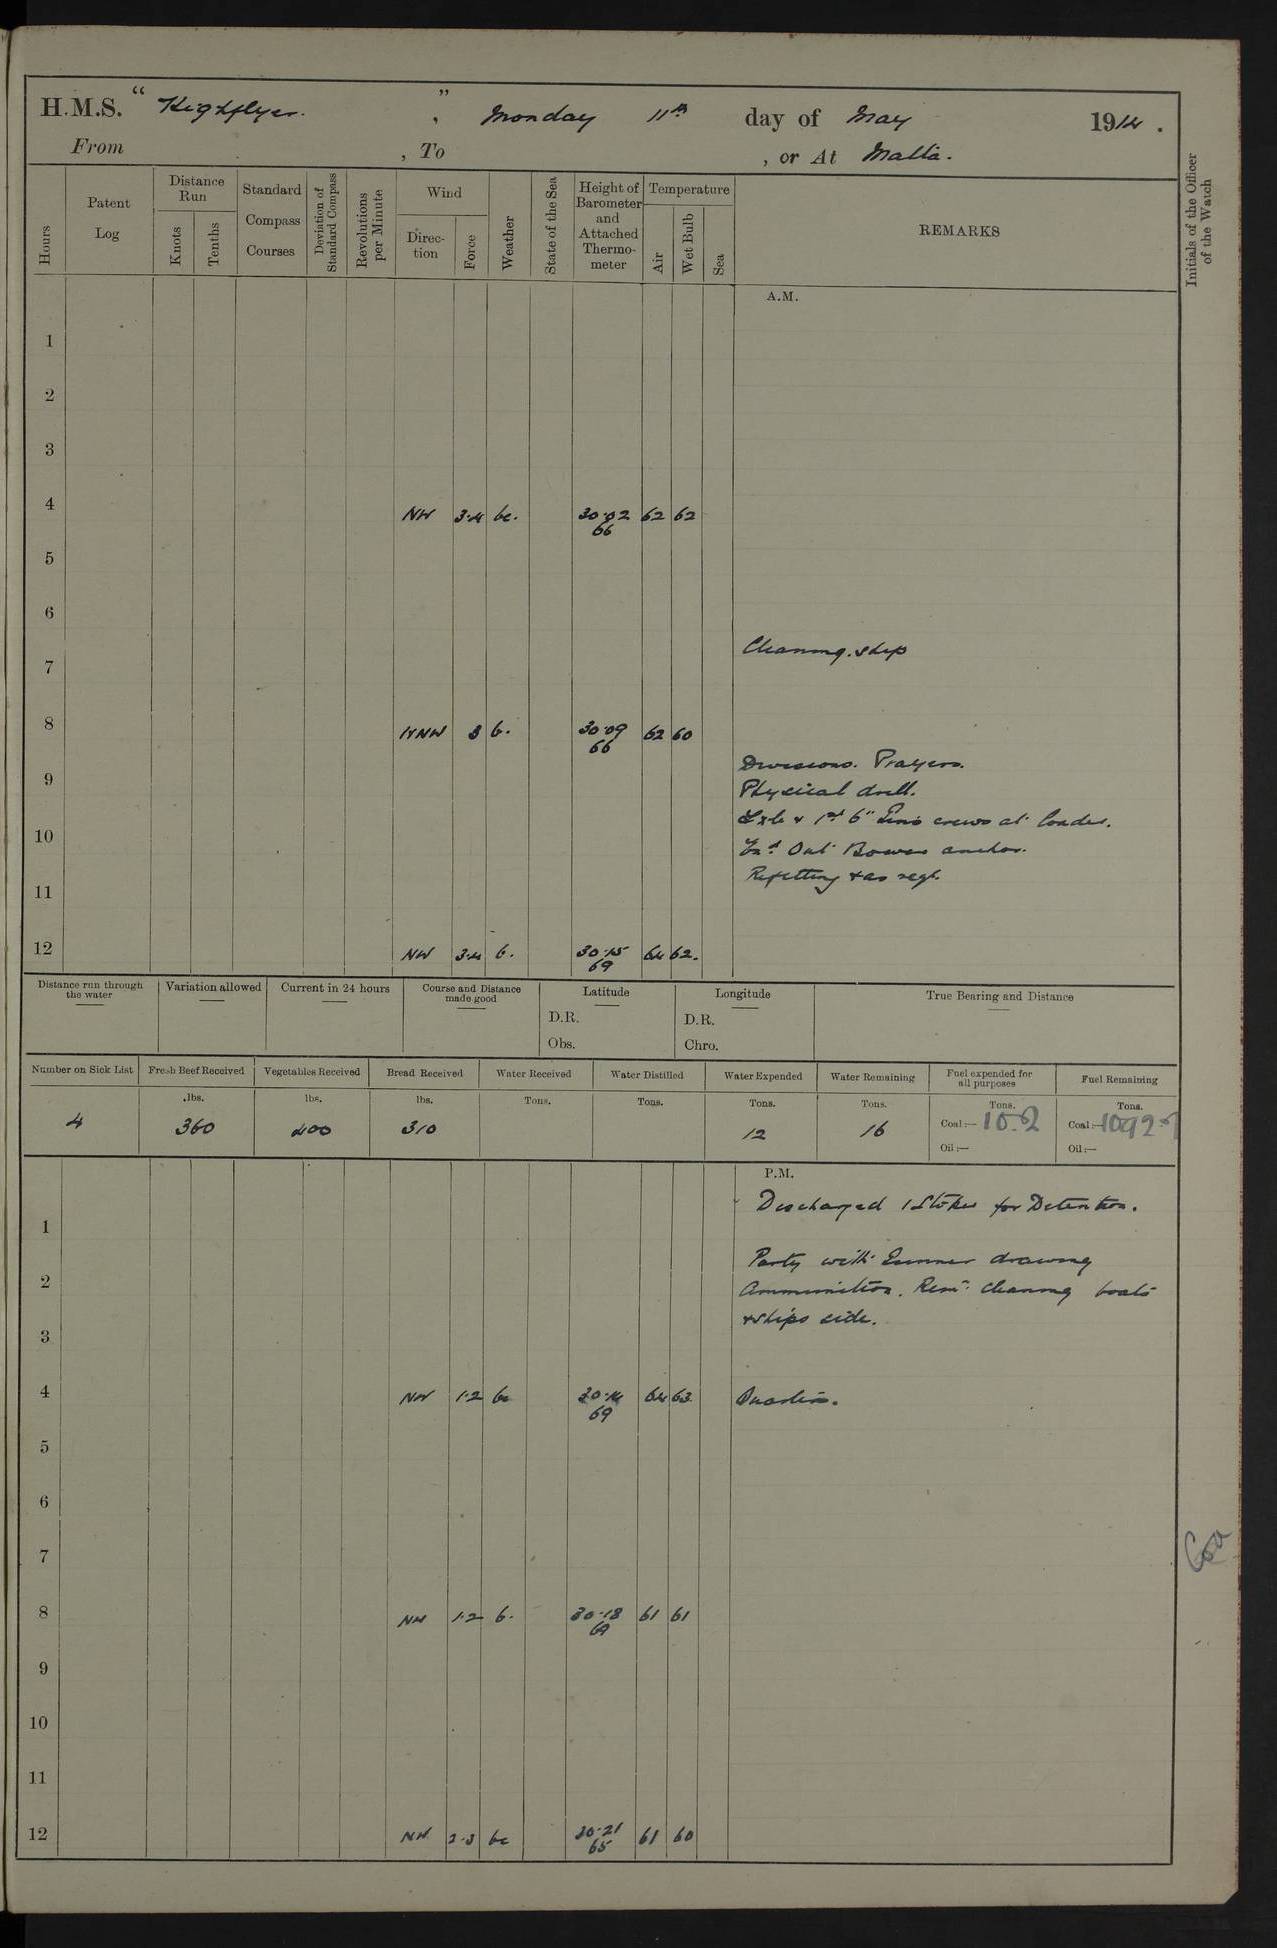 H.M.S. " Highflyer. " , Monday 11th day of May 1914.
From , To , or At Malta.
Hours
Patent Log
Distance Run
Knots
Tenths
Standard Compass Courses
Deviation of Standard Compass
Revolutions per Minute
Wind
Direc-tion
Force
Weather
State of the Sea
Height of Barometer and Attached Thermo-meter
Temperature
Air
Wet Bulb
Sea
REMARKS
Initials of the Officer of the Watch
A.M.
1
2
3
4 NW 3.4 bc. 30.02 62 62
66
5
6
Cleaning ship
7
8 NNW 3 b. 30.09 62 60
66
Divisions. Prayers.
9
Physical drill.
& 1st 6" Guns crews at loader.
10
Out Bower anchor.
Refitting & as req.
11
12 NW 3.4 b. 30.15 64 62.
69
Distance run through the water
Variation allowed
Current in 24 hours
Course and Distance made good
Latitude
D.R.
Obs.
Longitude
D.R.
Chro.
True Bearing and Distance
Number on Sick List
Fresh Beef Received
Vegetables Received
Bread Received
Water Received
Water Distilled
Water Expended
Water Remaining
Fuel expended for all purposes
Fuel Remaining
lbs. lbs. lbs. Tons. Tons. Tons. Tons. Tons. Tons.
4 360 400 310 12 16 Coal:— 10.2 Coal:— 1092.
Oil:— Oil:—
P.M.
Discharged 1 Stoker for Detention.
1
Party with Gunner drawing
2
Ammunition. Remr. cleaning boats
& ships side.
3
4 NW 1.2 bc 30.14 64 63 Quarters.
69
5
6
7
8 NW 1.2 b. 30.18 61 61
69
9
10
11
12 NW 2.3 bc 30.21 61 60
65